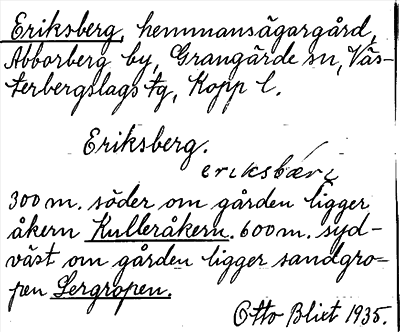 Eriksberg, hemmansägargård,
Abborberg by, Grangärde sn, Väs-
terbergslags tg, Kopp l.
Eriksberg.
eriksbæri
300 m. söder om gården ligger
åkern Kulleråkern. 600 m. syd-
väst om gården ligger sandgro-
pen Lergropen.
Otto Blixt 1935.